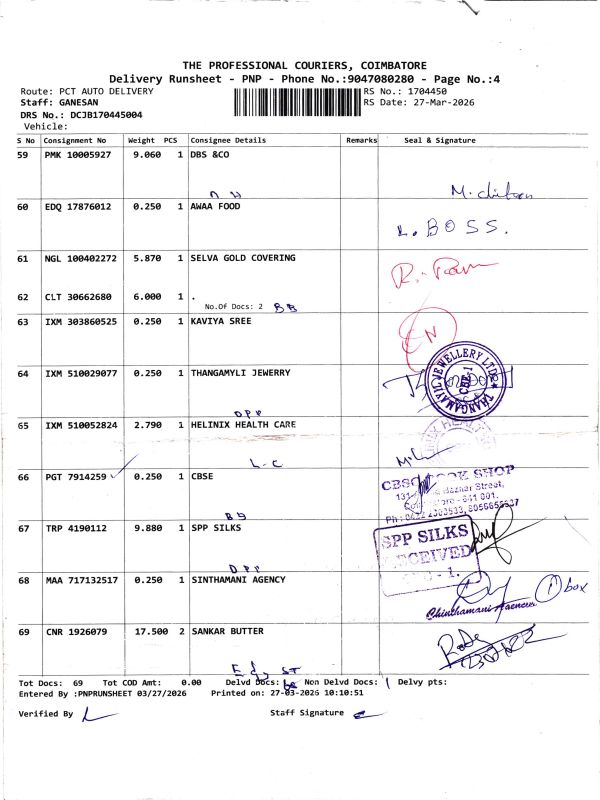 THE PROFESSIONAL COURIERS, COIMBATORE
Delivery Runsheet - PNP - Phone No.:9047080280 - Page No.:4
Route: PCT AUTO DELIVERY
RS No.: 1704450
Staff: GANESAN
RS Date: 27-Mar-2026
DRS No.: DCJB170445004
Vehicle:
S No Consignment No Weight PCS Consignee Details Remarks Seal & Signature
59 PMK 10005927 9.060 1 DBS &CO
60 EDQ 17876012 0.250 1 AWAA FOOD
L. BOSS.
61 NGL 100402272 5.870 1 SELVA GOLD COVERING
R. Ram
62 CLT 30662680 6.000 1 .
No.Of Docs: 2 BB
63 IXM 303860525 0.250 1 KAVIYA SREE
64 IXM 510029077 0.250 1 THANGAMYLI JEWERRY
THANGAMAYIL JEWELLERY LTD CBE-1
DPP
65 IXM 510052824 2.790 1 HELINIX HEALTH CARE
L-C
66 PGT 7914259 ✓ 0.250 1 CBSE
BOOK SHOP
Street,
641 001.
67 TRP 4190112 9.880 1 SPP SILKS
SPP SILKS
RECEIVED
DPP
68 MAA 717132517 0.250 1 SINTHAMANI AGENCY
1 box
Chinthamani Agencies
69 CNR 1926079 17.500 2 SANKAR BUTTER
Tot Docs: 69 Tot COD Amt: 0.00 Delvd Docs: Non Delvd Docs: Delvy pts:
Entered By :PNPRUNSHEET 03/27/2026 Printed on: 27-03-2026 10:10:51
Verified By
Staff Signature